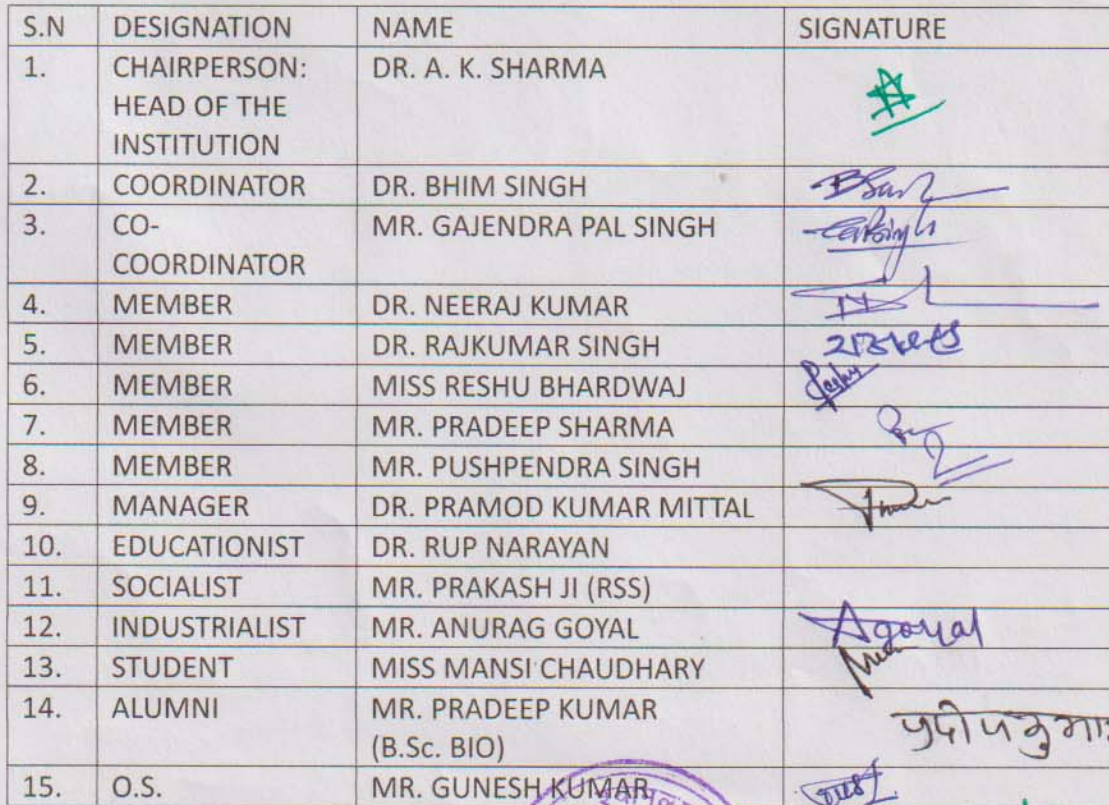 S.N DESIGNATION NAME SIGNATURE
1. CHAIRPERSON: DR. A. K. SHARMA
HEAD OF THE
INSTITUTION
2. COORDINATOR DR. BHIM SINGH
3. CO- MR. GAJENDRA PAL SINGH
COORDINATOR
4. MEMBER DR. NEERAJ KUMAR
5. MEMBER DR. RAJKUMAR SINGH
6. MEMBER MISS RESHU BHARDWAJ
7. MEMBER MR. PRADEEP SHARMA
8. MEMBER MR. PUSHPENDRA SINGH
9. MANAGER DR. PRAMOD KUMAR MITTAL
10. EDUCATIONIST DR. RUP NARAYAN
11. SOCIALIST MR. PRAKASH JI (RSS)
12. INDUSTRIALIST MR. ANURAG GOYAL Agoyal
13. STUDENT MISS MANSI CHAUDHARY
14. ALUMNI MR. PRADEEP KUMAR
(B.Sc. BIO)
15. O.S. MR. GUNESH KUMAR